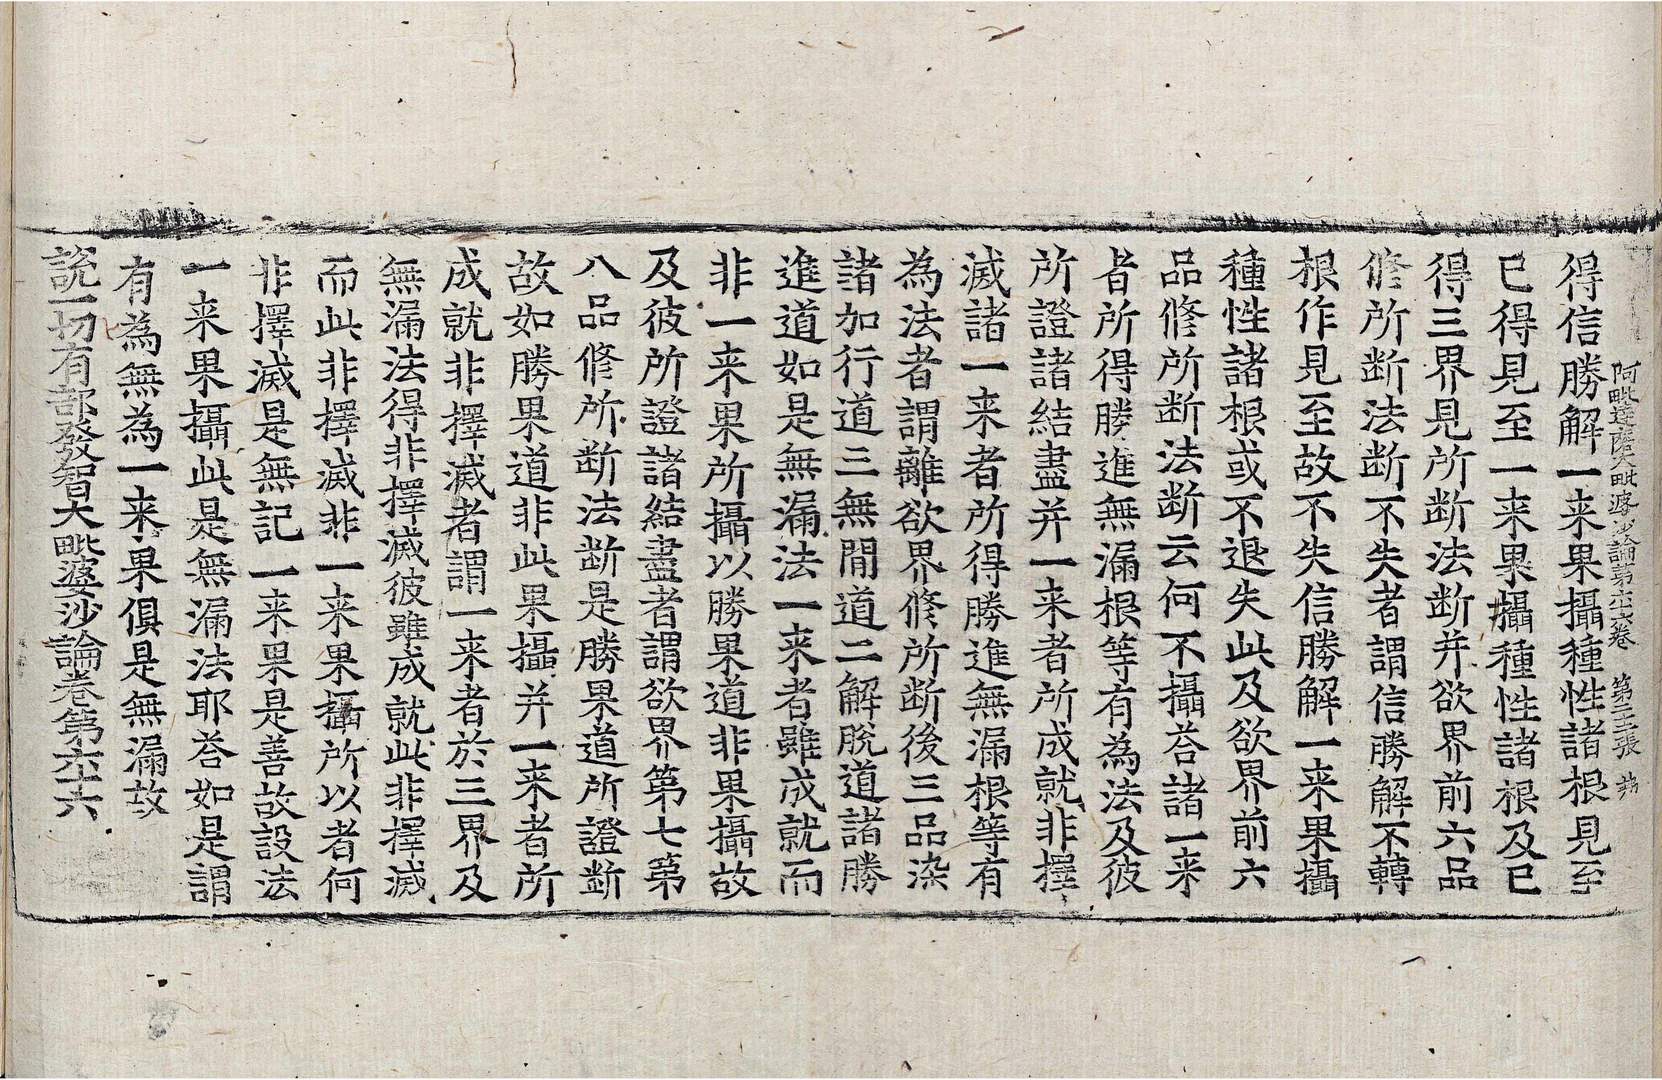 阿毗達磨大毗婆沙論第六十六卷 第二十二張
得信勝解一来果攝種性諸根見至
已得見至一来果攝種性諸根及已
得三界見所断法断并欲界前六品
修所断法断不失者謂信勝解不轉
根作見至故不失信勝解一来果攝
種性諸根或不退失此及欲界前六
品修所断法断云何不攝荅諸一来
者所得勝進無漏根等有為法及彼
所證諸結盡并一来者所成就非擇
滅諸一来者所得勝進無漏根等有
為法者謂離欲界修所断後三品染
諸加行道三無間道二解脫道諸勝
進道如是無漏法一来者雖成就而
非一来果所攝以勝果道非果攝故
及彼所證諸結盡者謂欲界第七第
八品修所断法断是勝果道所證断
故如勝果道非此果攝并一来者所
成就非擇滅者謂一来者於三界及
無漏法得非擇滅彼雖成就此非擇滅
而此非擇滅非一来果攝所以者何
非擇滅是無記一来果是善故設法
一来果攝此是無漏法耶荅如是謂
有為無為一来果俱是無漏故
說一切有部發智大毗婆沙論卷第六十六